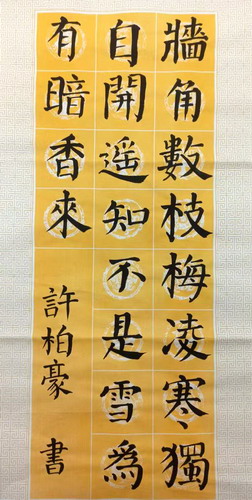 牆角數枝梅凌寒獨
自開遥知不是雪為
有暗香來
許柏豪 書